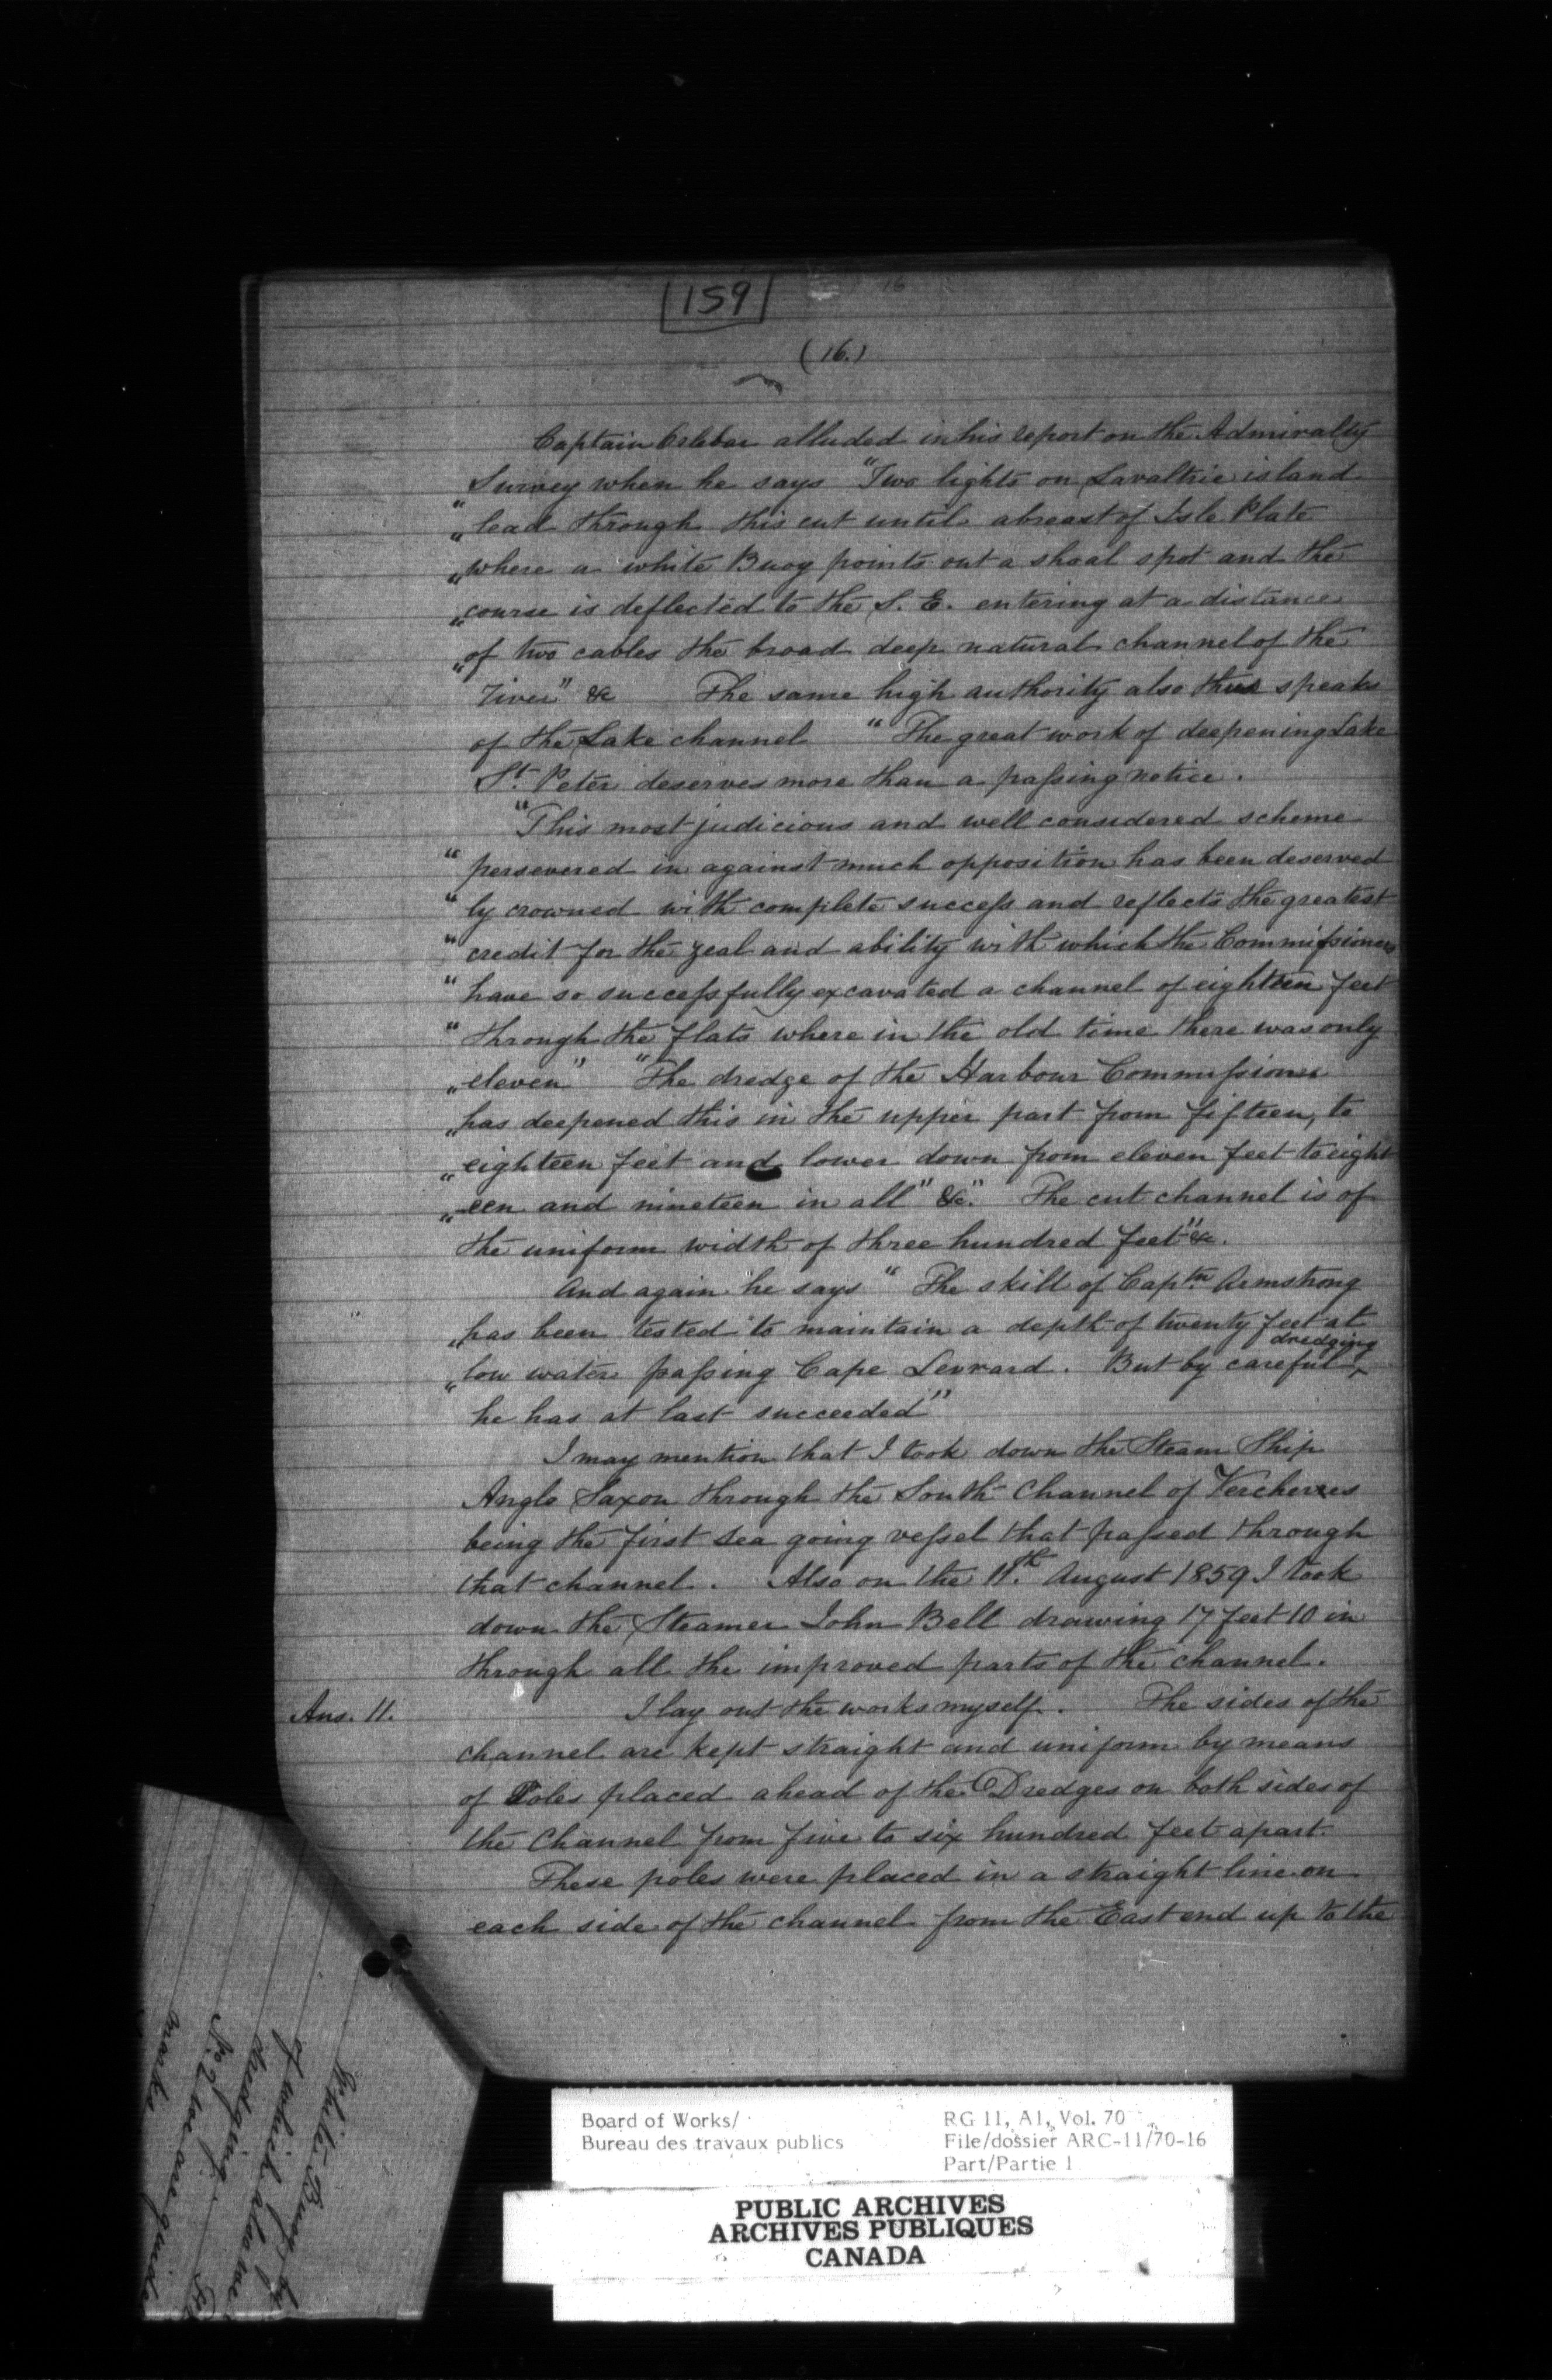 159
16
(16.)
Captain Orlebar alluded in his report on the Admiralty
Survey when he says "Two lights on Lavaltrie island
"lead through this cut until abreast of Isle Plate
"where a white Buoy points out a shoal spot and the
"course is deflected to the S. E. entering at a distance
"of two cables the broad deep natural channel of the
"river" &c The same high authority also thus speaks
of the Lake channel "The great work of deepening Lake
St. Peter deserves more than a passing notice.
"This most judicious and well considered scheme
"persevered in against much opposition has been deserved
"ly crowned with complete success and reflects the greatest
"credit for the zeal and ability with which the Commissioners
"have so successfully excavated a channel of eighteen feet
"through the flats where in the old time there was only
"eleven" "The dredge of the Harbour Commissioners
"has deepened this in the upper part from fifteen, to
"eighteen feet and lower down from eleven feet to eight
"een and nineteen in all" &c." The cut channel is of
the uniform width of three hundred feet" &c.
And again he says "The skill of Captn. Armstrong
"has been tested to maintain a depth of twenty feet at
"low water passing Cape Levrard. But by careful dredging
he has at last succeeded"
I may mention that I took down the Steam Ship
Anglo Saxon through the South Channel of Vercheres
being the first sea going vessel that passed through
that channel. Also on the 11th. August 1859 I took
down the Steamer John Bell drawing 17 feet 10 in
through all the improved parts of the channel.
Ans. 11. I lay out the works myself. The sides of the
channel are kept straight and uniform by means
of Poles placed ahead of the Dredges on both sides of
the Channel from five to six hundred feet apart.
These poles were placed in a straight line on
each side of the channel from the East end up to the
White Buoy, by
of which also we
dredging.
No. 2 we are guided
marks
Board of Works/
Bureau des travaux publics
RG 11, A1, Vol. 70
File/dossier ARC-11/70-16
Part/Partie 1
PUBLIC ARCHIVES
ARCHIVES PUBLIQUES
CANADA